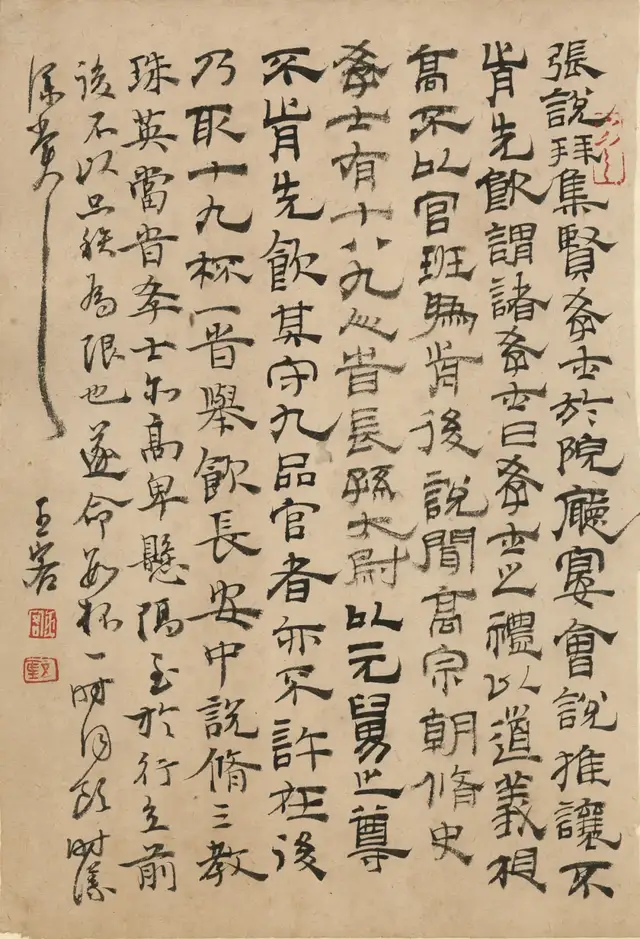 張說拜集賢學士於院廳宴會說推讓不
肯先飲謂諸學士曰學士之禮以道義相
高不以官班為前後說聞高宗朝脩史
學士有十八九人旹長孫太尉以元舅之尊
不肯先飲其守九品官者亦不許在後
乃取十九杯一旹舉飲長安中說脩三教
珠英當旹學士亦高卑懸隔至於行立前
後不以品秩為限也遂命數杯一時同飲時議
深賞
王